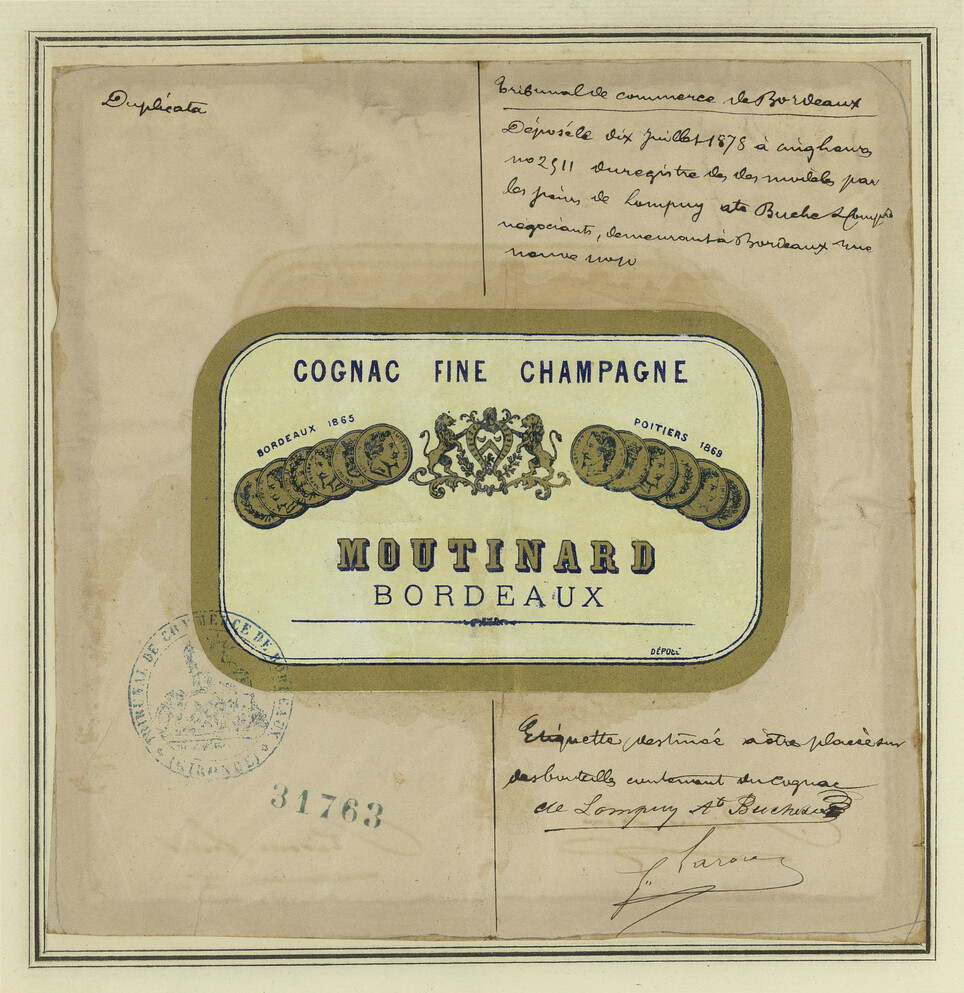 Duplicata
Tribunal de commerce de Bordeaux
Déposé le dix Juillet 1878 à cinq heures
no 2511 du registre des des modèles par
les sieurs de Lompuy ate Buche & Comp
négociants, demeurant à Bordeaux rue
COGNAC FINE CHAMPAGNE
BORDEAUX 1865
POITIERS 1869
MOUTINARD
BORDEAUX
DÉPOSÉ
TRIBUNAL DE COMMERCE DE BORDEAUX
(GIRONDE)
31763
Etiquette destinée a être placée sur
des bouteilles contenant du cognac
de Lompuy Ate Buche